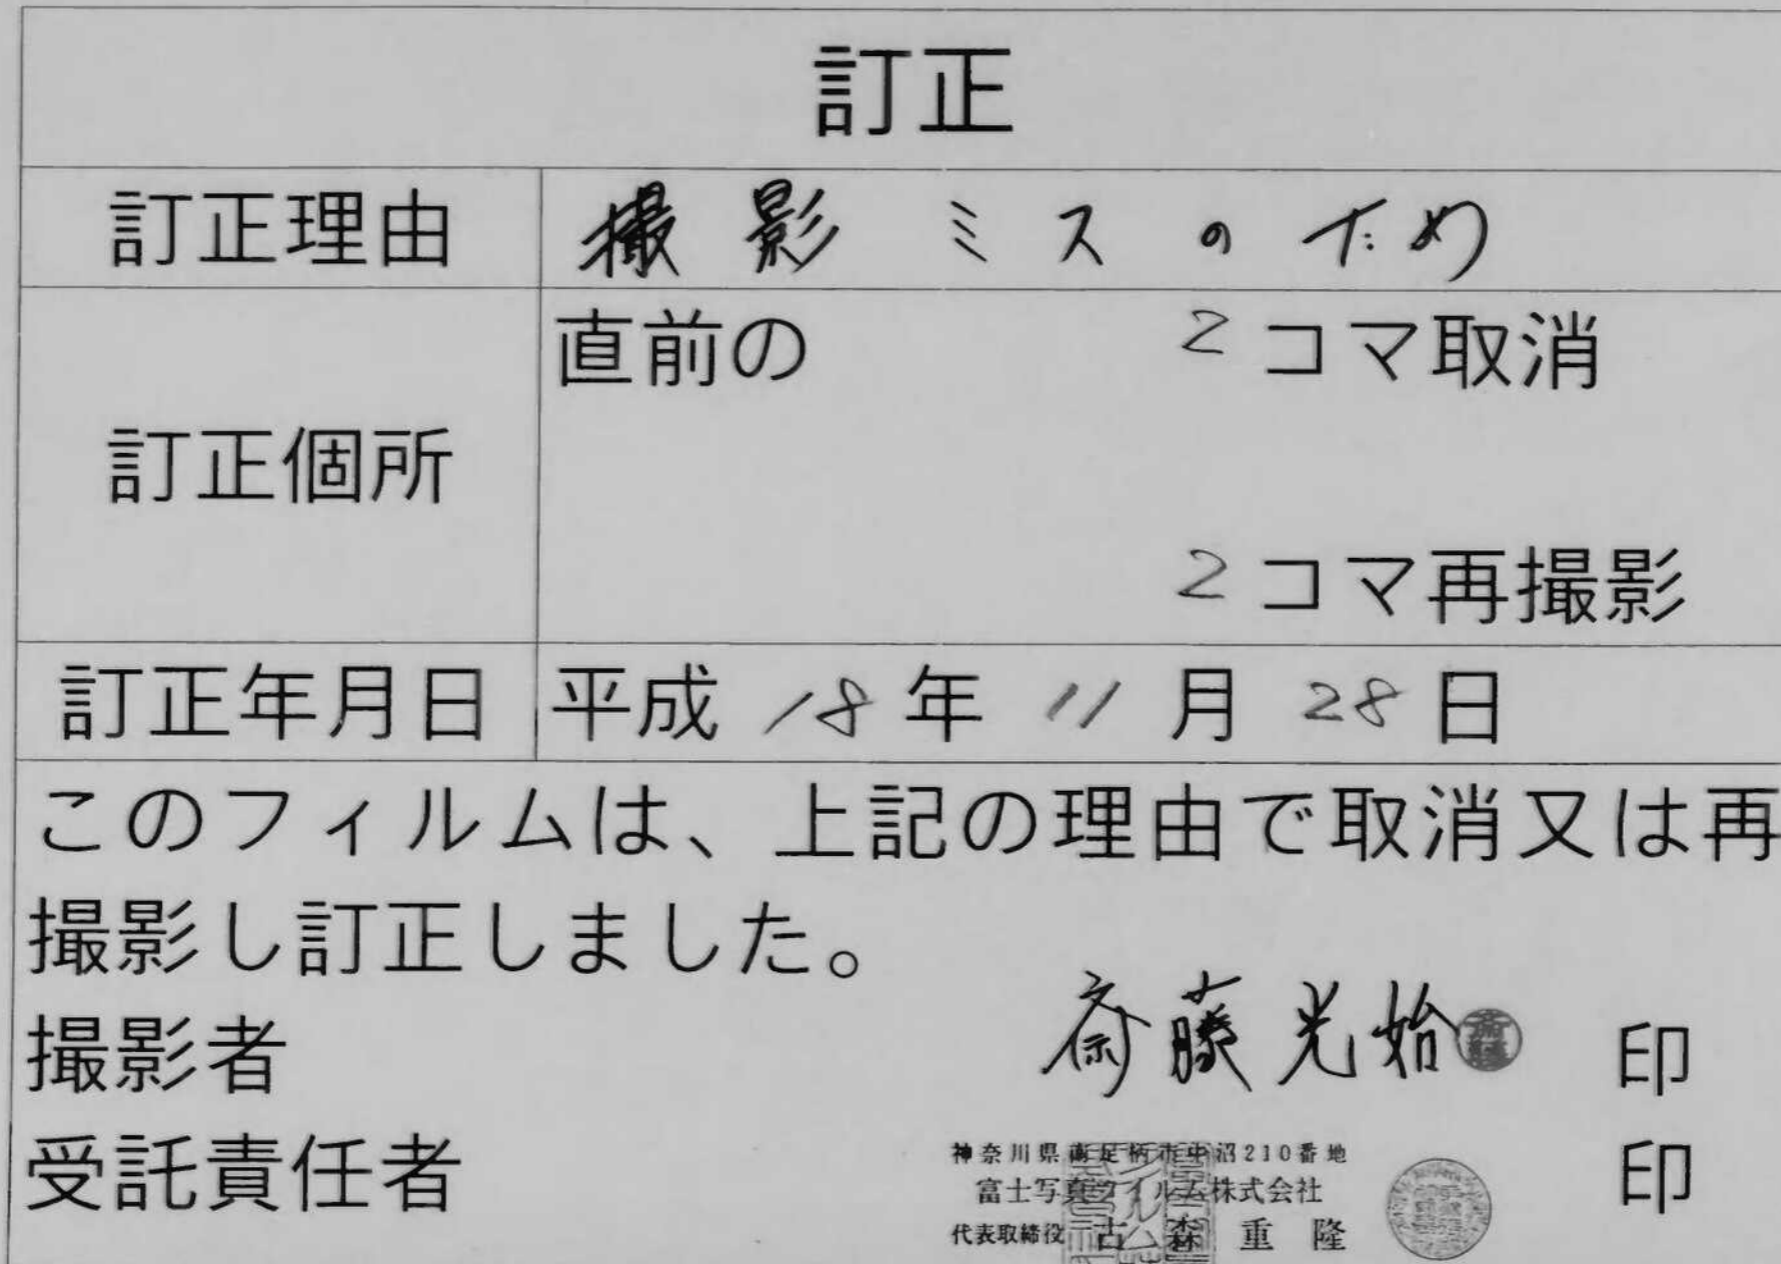 訂正
訂正理由 撮影ミスのため
直前の 2コマ取消
訂正個所
2コマ再撮影
訂正年月日 平成18年11月28日
このフィルムは、上記の理由で取消又は再
撮影し訂正しました。
撮影者 斎藤光始 斎藤 印
神奈川県南足柄市中沼210番地
受託責任者 富士写真フイルム株式会社 印
代表取締役 古森重隆